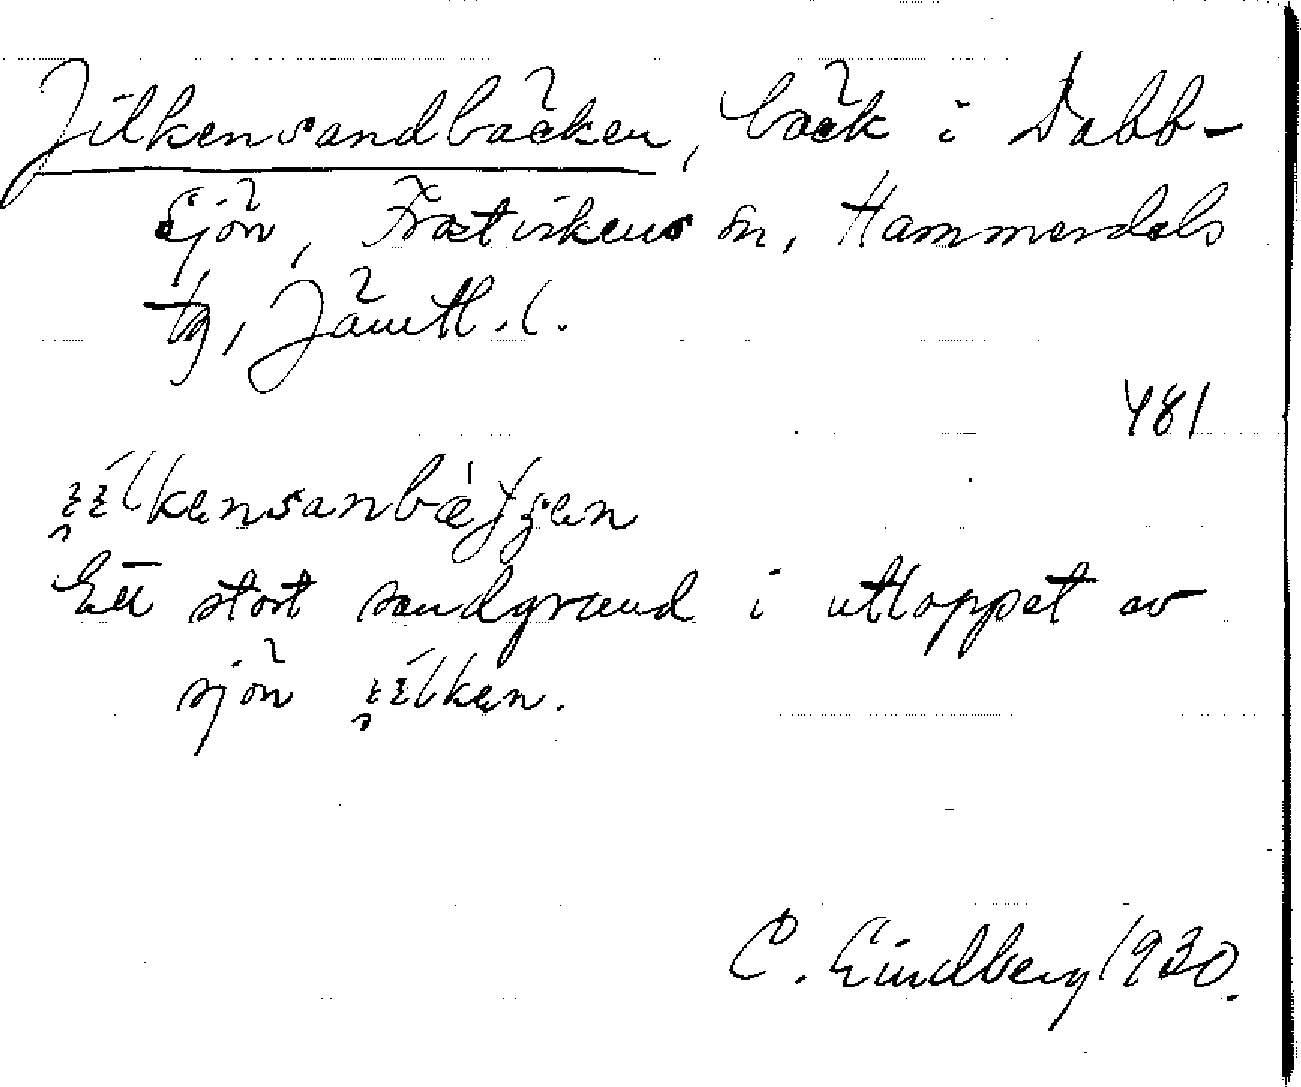 Jilkensandbäcken, bäck i Dabb-
sjön, Frostvikens sn, Hammerdals
tg, Jämtl. l.
481
Ett stort sandgrund i utloppet av
sjön
C. Lindberg 1930.